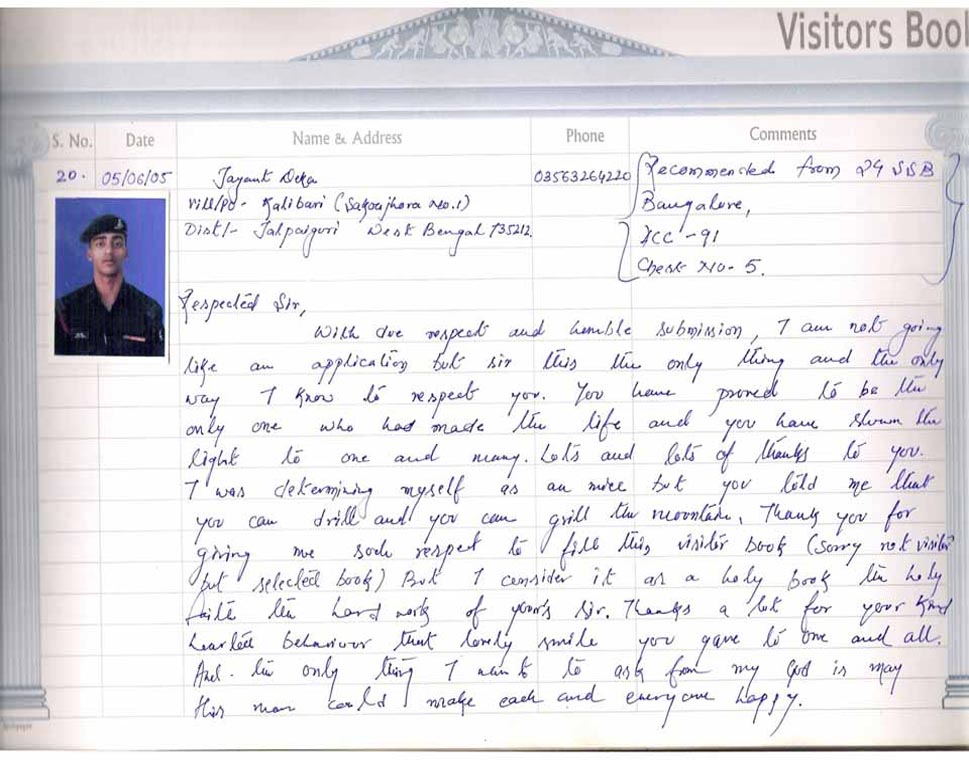 Visitors Boo
S. No. Date Name & Address Phone Comments
20. 05/06/05 Jayant Deka 03563264220 Recommended from 24 SSB
Vill/PO- Kalibari (Sakoajhora No.1) Bangalore,
Dist/- Jalpaiguri West Bengal 735212. NCC -91
Chest No- 5.
Respected Sir,
With due respect and humble submission, I am not going
like an application but sir this the only thing and the only
way I know to respect you. You have proved to be the
only one who had made the life and you have shown the
light to one and many. Lots and lots of thanks to you.
I was determining myself as an mice but you told me that
you can drill and you can grill the mountain. Thank you for
giving me such respect to fill this visiter book (Sorry not visiter
but selected book) But I consider it as a holy book the holy
the hard work of yours sir. Thanks a lot for your kind
hearted behaviour that lovely smile you gave to one and all.
And. the only thing I want to ask from my God is may
this man could make each and everyone happy.